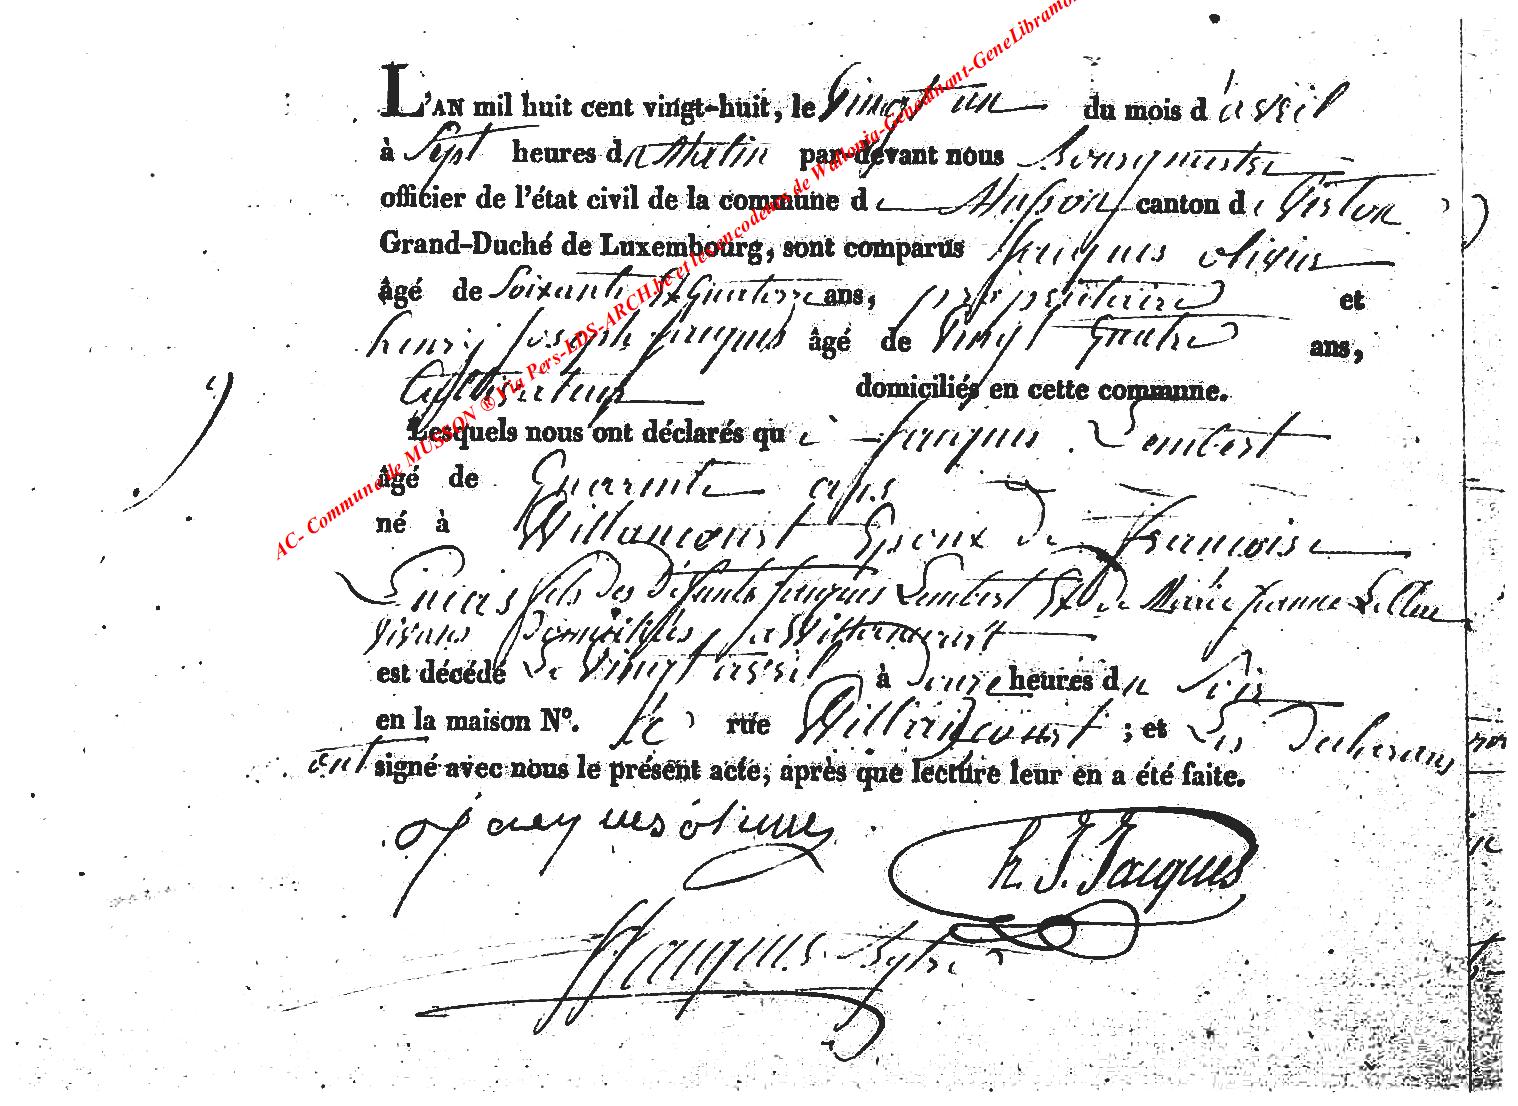 L'AN mil huit cent vingt-huit, le Vingt un du mois d'avril
à Sept heures du Matin par devant nous Bourgmestre
officier de l'état civil de la commune de Musson canton de Virton
Grand-Duché de Luxembourg, sont comparus Jacques olivier
âgé de Soixante & Quatorze ans, propriétaire et
henry joseph jacques âgé de Vingt Quatre ans,
Cultivateur domiciliés en cette commune.
Lesquels nous ont déclarés que Jacques Lembert
âgé de Quarante ans
né à Willancourt Epoux de Francoise
fils des Défunts Jacques Lembert Et de Marie Jeanne
Vivans Domiciliés a Willancourt
est décédé Le Vingt avril à Douze heures du Soir
en la maison N°. rue Willancourt ; et Les Declarans
ont signé avec nous le présent acte, après que lecture leur en a été faite.
jacques olivier
h. J. Jacques
Jacques
AC- Commune de MUSSON ® Via Pers-LDS-ARCH.be et les encodeurs de Wallonia-Genedinant-GeneLibramo